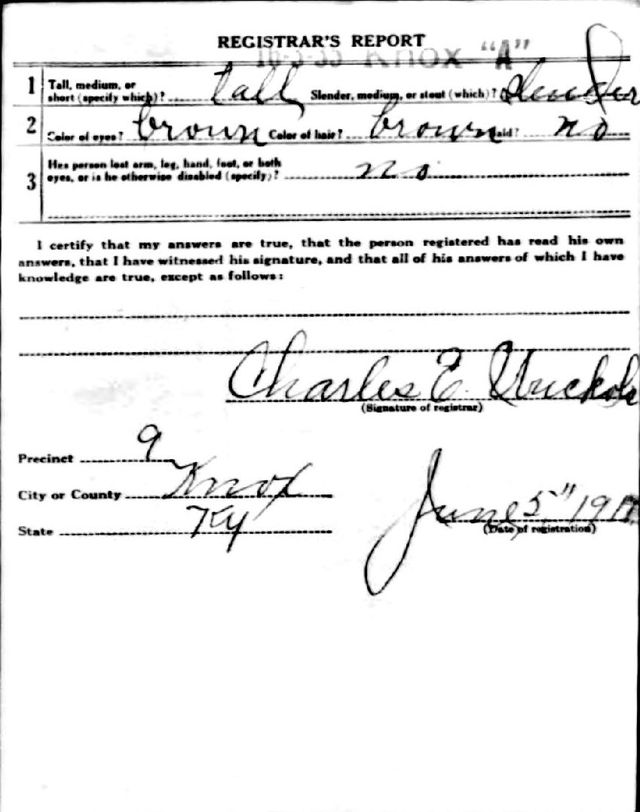 REGISTRAR'S REPORT
16-3-33 Knox "A"
1 Tall, medium, or short (specify which)? tall Slender, medium, or stout (which)? slender
2 Color of eyes? brown Color of hair? brown Bald? no
3 Has person lost arm, leg, hand, foot, or both
eyes, or is he otherwise disabled (specify)? no
I certify that my answers are true, that the person registered has read his own
answers, that I have witnessed his signature, and that all of his answers of which I have
knowledge are true, except as follows:
Charles E.
(Signature of registrar)
Precinct 9
City or County Knox
State Ky
June 5" 1917
(Date of registration)